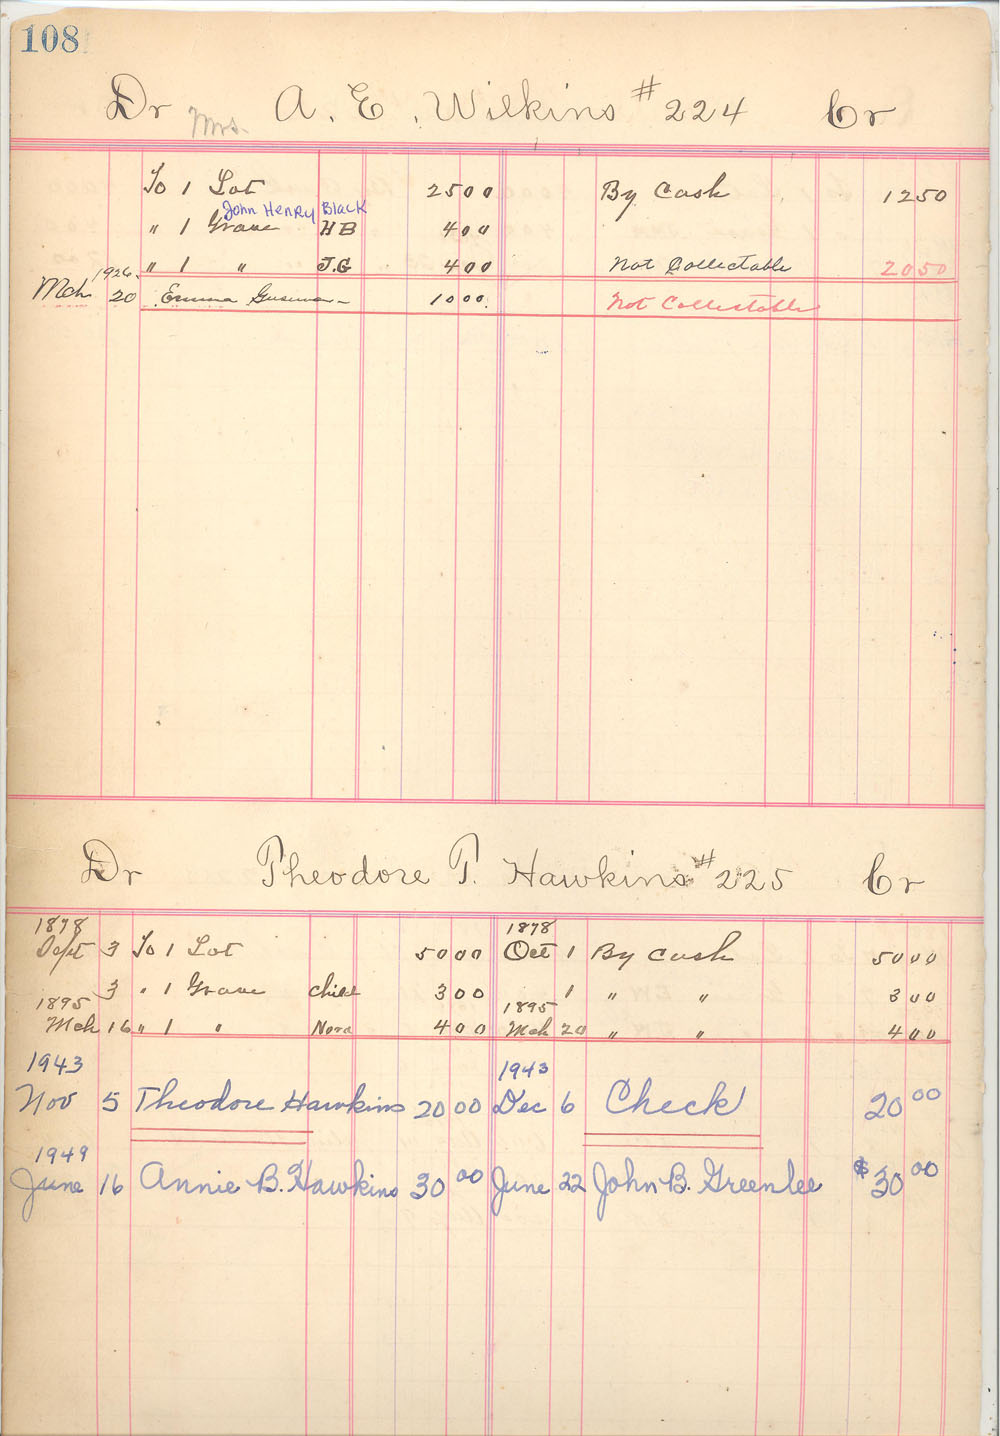 108
Dr Mrs. A. E. Wilkins #224 Cr
To 1 Lot 25 00 By Cash 12 50
John Henry Black
" 1 Grave H B 4 00
" 1 " J.G 4 00 Not Collectable 20 50
1926.
Mch 20 Emma 10 00. Not Collectable
Dr Theodore T. Hawkins #225 Cr
1878 1878
Sept 3 To 1 Lot 50 00 Oct 1 By Cash 50 00
3 " 1 Grave Child 3 00 1 " " 3 00
1895 1895
Mch 16 " 1 " Nora 4 00 Mch 20 " " 4 00
1943 1943
Nov 5 Theodore Hawkins 20 00 Dec 6 Check 20 00
1949
June 16 Annie B. Hawkins 30 00 June 22 John B. Greenlee $30 00